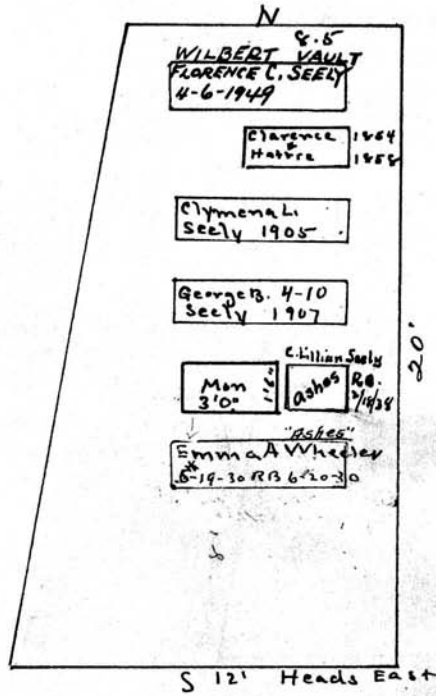 N
8.5
WILBERT VAULT
FLORENCE C. SEELY
4-6-1949
Clarence 1864
&
Hattie 1858
Clymena L.
Seely 1905
George B. 4-10
Seely 1907
C. Lillian Seely
Mon
3'0"
1'6"
Ashes
R.B.
2/18/38
20'
"Ashes"
Emma A Wheeler
6-19-30 RB 6-20-30
S 12' Heads East